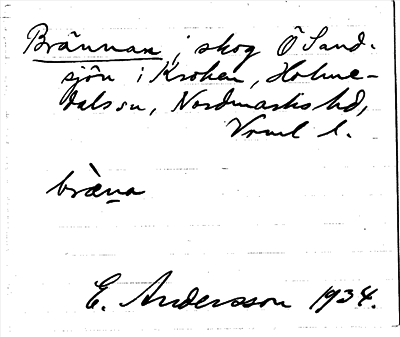 Brännan, skog Ö Sand-
sjön i Kroken, Holme-
dals sn, Nordmarks hd,
Vrml l.
bræna
E. Andersson 1934.